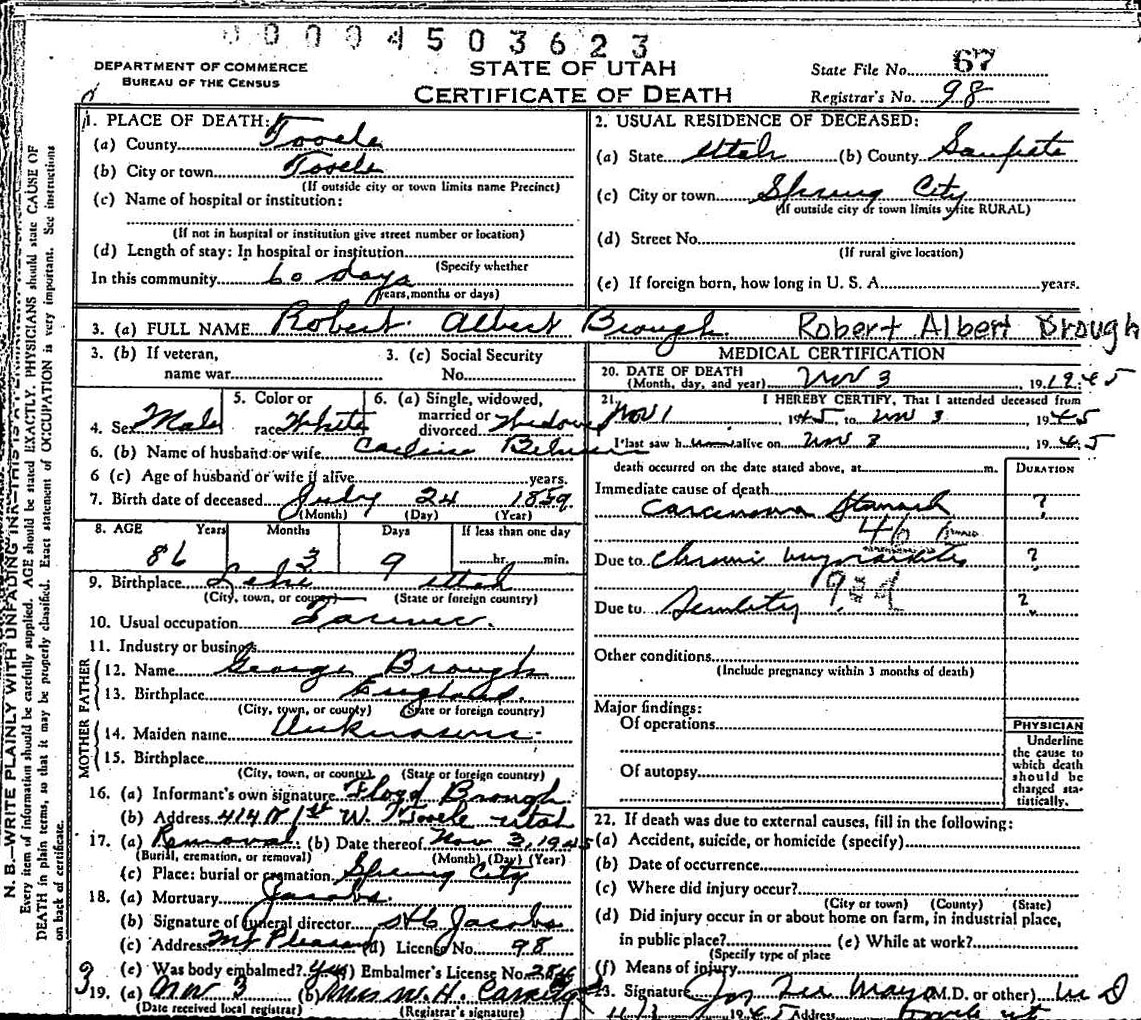 00004503623
DEPARTMENT OF COMMERCE
BUREAU OF THE CENSUS
STATE OF UTAH
CERTIFICATE OF DEATH
State File No. 67
Registrar's No. 98
N. B.—WRITE PLAINLY WITH UNFADING INK—THIS IS A PERMANENT
Every item of information should be carefully supplied. AGE should be stated EXACTLY. PHYSICIANS should state CAUSE OF
DEATH in plain terms, so that it may be properly classified. Exact statement of OCCUPATION is very important. See instructions
on back of certificate.
1. PLACE OF DEATH:
(a) County Tooele
(b) City or town Tooele
(If outside city or town limits name Precinct)
(c) Name of hospital or institution:
(If not in hospital or institution give street number or location)
(d) Length of stay: In hospital or institution
(Specify whether
In this community 60 days
years, months or days)
2. USUAL RESIDENCE OF DECEASED:
(a) State Utah (b) County Sanpete
(c) City or town Spring City
(If outside city or town limits write RURAL)
(d) Street No.
(If rural give location)
(e) If foreign born, how long in U. S. A. years.
3. (a) FULL NAME Robert Albert Brough Robert Albert Brough
3. (b) If veteran, name war
3. (c) Social Security No.
4. Sex Male
5. Color or race White
6. (a) Single, widowed, married or divorced Widowed
6. (b) Name of husband or wife
6 (c) Age of husband or wife if alive years.
7. Birth date of deceased July 24 1859
(Month) (Day) (Year)
8. AGE Years Months Days If less than one day
86 3 9 hr. min.
9. Birthplace Lehi Utah
(City, town, or county) (State or foreign country)
10. Usual occupation Farmer.
11. Industry or business
FATHER
12. Name George Brough
13. Birthplace England.
(City, town, or county) (State or foreign country)
MOTHER
14. Maiden name Unknown
15. Birthplace
(City, town, or county) (State or foreign country)
16. (a) Informant's own signature Floyd Brough
(b) Address 414 N 1st W. Tooele Utah
17. (a) Removal (b) Date thereof Nov 3, 1945
(Burial, cremation, or removal) (Month) (Day) (Year)
(c) Place: burial or cremation Spring City
18. (a) Mortuary Jacobs.
(b) Signature of funeral director Jacobs
(c) Address Mt Pleasant (d) License No. 98
(e) Was body embalmed? yes (f) Embalmer's License No.
19. (a) Nov 3 (b) Mrs W. H.
(Date received local registrar) (Registrar's signature)
MEDICAL CERTIFICATION
20. DATE OF DEATH
(Month, day, and year) Nov 3, 1945
21. I HEREBY CERTIFY, That I attended deceased from
Nov 1 1945, to Nov 3, 1945
I last saw h alive on Nov 3 1945
death occurred on the date stated above, at m.
DURATION
Immediate cause of death
Carcinoma Stomach ?
46 b
Due to Chronic myocarditis ?
93d
Due to Senility ?
Other conditions
(Include pregnancy within 3 months of death)
Major findings:
Of operations
Of autopsy
PHYSICIAN
Underline
the cause to
which death
should be
charged sta-
tistically.
22. If death was due to external causes, fill in the following:
(a) Accident, suicide, or homicide (specify)
(b) Date of occurrence
(c) Where did injury occur?
(City or town) (County) (State)
(d) Did injury occur in or about home on farm, in industrial place,
in public place? (e) While at work?
(Specify type of place
(f) Means of injury
23. Signature Jos Lee Mayo (M.D. or other) M D
1945 Address Tooele Ut